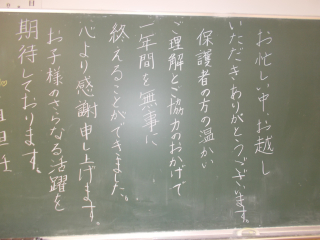 お忙しい中、お越し
いただきありがとうございます。
保護者の方の温かい
ご理解とご協力のおかげで
一年間を無事に
終えることができました。
心より感謝申し上げます。
お子様のさらなる活躍を
期待しております。
担任